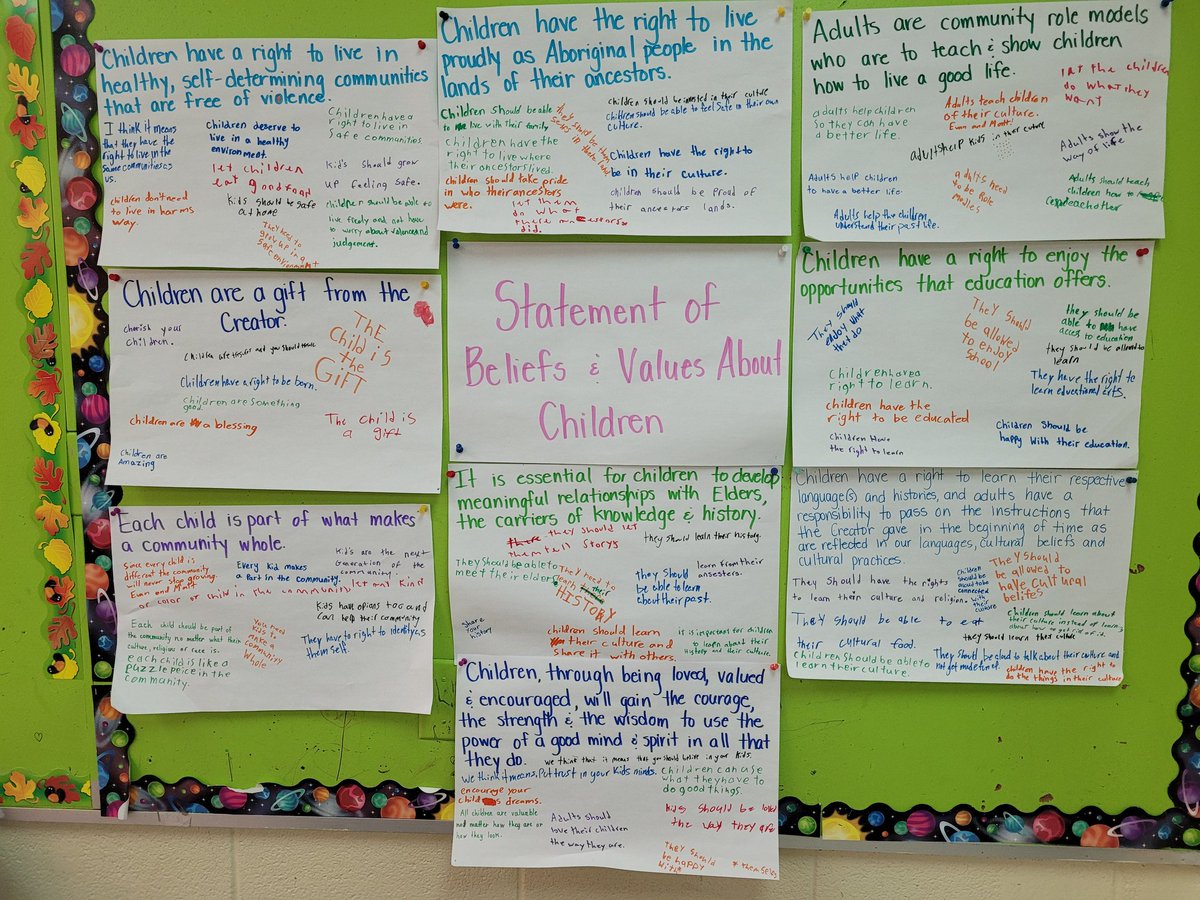 Children have a right to live in
healthy, self-determining communities
that are free of violence.
I think it means
that they have the
right to live in the
same communities as
us.
Children deserve to
live in a healthy
environment.
Children have a
right to live in
safe communities.
let children
eat good food
Kid's should grow
up feeling safe.
children don't need
to live in harms
way.
Kids should be safe
at home
They need to
grow up in a
safe environment
children should be able to
live freely and not have
to worry about violence and
judgement.
Children have the right to live
proudly as Aboriginal people in the
lands of their ancestors.
Children should be able
to live with their family
Children should be in their culture
Children should be able to feel safe in their own
culture.
Children have the
right to live where
their ancestors lived.
Children have the right to
be in their culture.
children should take pride
in who their ancestors
were.
let them
do what
there ancestors
did.
children should be proud of
their ancestors lands.
Adults are community role models
who are to teach & show children
how to live a good life.
let the children
do what they
want
adults help children
so they can have
a better life.
Adults teach children
of their culture.
Evan and Matt
Adults help kids in their culture
Adults show the
way of life
Adults help children
to have a better life.
adults need
to be Role
Modles
Adults should teach
children how to
eachother
Adults help the children
understand their past life.
Children are a gift from the
Creator.
cherish your
children.
THE
Child is
the
GIFT
Children have a right to be born.
Children are something
good.
children are a blessing
The child is
a gift
Children are
Amazing
Statement of
Beliefs & Values About
Children
Children have a right to enjoy the
opportunities that education offers.
They should
enjoy what
they do
They should
be allowed
to enjoy
School
they should be
able to have
acess to education
they should be allowed to
learn
Children have a
right to learn.
They have the right to
learn educational arts.
children have the
right to be educated
Children Have
the right to learn
Children should be
happy with their education.
Each child is part of what makes
a community whole.
Since every child is
different the community
will never stop growing.
Evan and Matt
Every kid makes
a Part in the community.
Kid's are the next
Generation of the
community.
let any Kind
or color or child in the community
Kids have opions too and
can help their community
Each child should be part of
the community no matter what their
culture, religious or race is.
You need
kids to
make a
community
Whole
They have to right to identify as
them self.
each child is like a
puzzle peice in the
community.
It is essential for children to develop
meaningful relationships with Elders,
the carriers of knowledge & history.
they should let
them tell storys
they should learn their history.
They Should be able to
meet their elders
They need to
learn their
HISTORY
they should
be able to learn
about their past.
learn from their
ansesters.
Share
Your
history
children should learn
their culture and
share it with others.
is is important for children
to learn about their
History and their culture.
Children have a right to learn their respective
language(s) and histories, and adults have a
responsibility to pass on the Instructions that
the Creator gave in the beginning of time as
are reflected in our languages, cultural beliefs and
cultural practices.
They Should have the rights
to learn their culture and religion.
Children
should be
aloud to be
connected
with their
culture
They should
be allowed to
have cultural
belifes
They Should be able to eat
their cultural food.
Children should learn about
their culture instead of learn
about how to get rid of it.
they should learn their culture
Children should be able to
learn their culture.
They should be aloud to talk about their culture and
not get made fun of.
children have the right to
do the things in their culture
Children, through being loved, valued
& encouraged, will gain the courage,
the strength & the wisdom to use the
power of a good mind & spirit in all that
they do.
We think that it means that you should believe in your kids.
We think it means, Put trust in your Kids minds.
encourage your
childs dreams.
Children can use
what they have to
do good things.
All children are valuable
no matter how they are or
how they look.
Adults should
love their children
the way they are.
Kids should be loved
the way they are
They should
be happy
with
themselfes